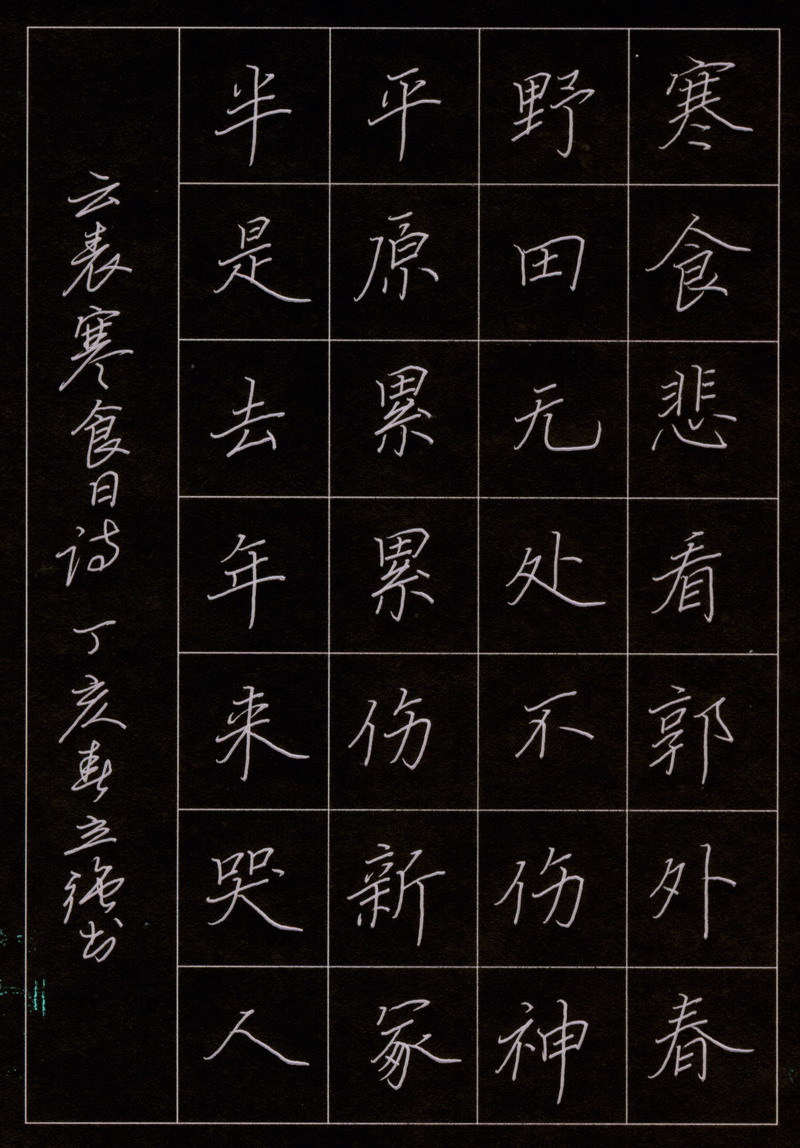 寒食悲看郭外春
野田无处不伤神
平原累累伤新冢
半是去年来哭人
云表寒食日诗 丁亥春立强书